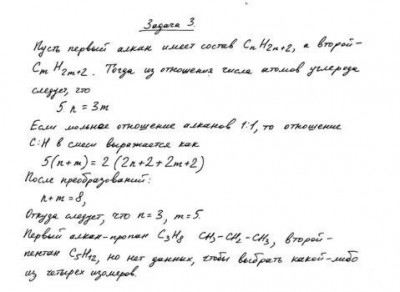 Задача 3.
Пусть первый алкан имеет состав CnH2n+2, а второй-
CmH2m+2. Тогда из отношения числа атомов углерода
следует, что
5n = 3m
Если мольное отношение алканов 1:1, то отношение
C:H в смеси выражается как
5(n+m) = 2 (2n+2+2m+2)
После преобразований:
n+m = 8,
Откуда следует, что n=3, m=5.
Первый алкан-пропан C3H8 CH3-CH2-CH3, второй-
пентан C5H12, но нет данных, чтобы выбрать какой-либо
из четырех изомеров.